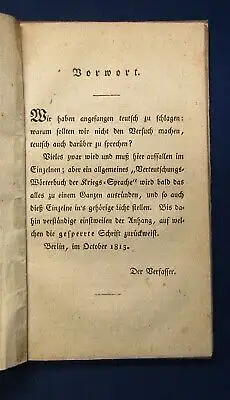 Vorwort.
Wir haben angefangen teutsch zu schlagen:
warum sollten wir nicht den Versuch machen,
teutsch auch darüber zu sprechen?
Vieles zwar wird und muß hier auffallen im
Einzelnen; aber ein allgemeines „Verteutschungs-
Wörterbuch der Kriegs-Sprache“ wird bald das
alles zu einem Ganzen ausründen, und so auch
dieß Einzelne in's gehörige Licht stellen. Bis da-
hin verständige einstweilen der Anhang, auf wel-
chen die gesperrte Schrift zurückweist.
Berlin, im October 1813.
Der Verfasser.